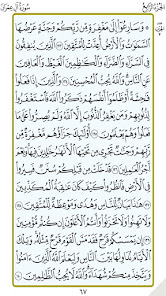 الجزء الرابع
سورة آل عمران
۞ وَسَارِعُوٓا۟ إِلَىٰ مَغْفِرَةٍ مِّن رَّبِّكُمْ وَجَنَّةٍ عَرْضُهَا
ٱلسَّمَٰوَٰتُ وَٱلْأَرْضُ أُعِدَّتْ لِلْمُتَّقِينَ ١٣٣ ٱلَّذِينَ يُنفِقُونَ
فِى ٱلسَّرَّآءِ وَٱلضَّرَّآءِ وَٱلْكَٰظِمِينَ ٱلْغَيْظَ وَٱلْعَافِينَ
عَنِ ٱلنَّاسِ وَٱللَّهُ يُحِبُّ ٱلْمُحْسِنِينَ ١٣٤ وَٱلَّذِينَ إِذَا فَعَلُوا۟
فَٰحِشَةً أَوْ ظَلَمُوٓا۟ أَنفُسَهُمْ ذَكَرُوا۟ ٱللَّهَ فَٱسْتَغْفَرُوا۟
لِذُنُوبِهِمْ وَمَن يَغْفِرُ ٱلذُّنُوبَ إِلَّا ٱللَّهُ وَلَمْ يُصِرُّوا۟ عَلَىٰ مَا
فَعَلُوا۟ وَهُمْ يَعْلَمُونَ ١٣٥ أُو۟لَٰٓئِكَ جَزَآؤُهُم مَّغْفِرَةٌ مِّن
رَّبِّهِمْ وَجَنَّٰتٌ تَجْرِى مِن تَحْتِهَا ٱلْأَنْهَٰرُ خَٰلِدِينَ فِيهَا وَنِعْمَ
أَجْرُ ٱلْعَٰمِلِينَ ١٣٦ قَدْ خَلَتْ مِن قَبْلِكُمْ سُنَنٌ فَسِيرُوا۟ فِى
ٱلْأَرْضِ فَٱنظُرُوا۟ كَيْفَ كَانَ عَٰقِبَةُ ٱلْمُكَذِّبِينَ ١٣٧
هَٰذَا بَيَانٌ لِّلنَّاسِ وَهُدًى وَمَوْعِظَةٌ لِّلْمُتَّقِينَ ١٣٨
وَلَا تَهِنُوا۟ وَلَا تَحْزَنُوا۟ وَأَنتُمُ ٱلْأَعْلَوْنَ إِن كُنتُم مُّؤْمِنِينَ ١٣٩
إِن يَمْسَسْكُمْ قَرْحٌ فَقَدْ مَسَّ ٱلْقَوْمَ قَرْحٌ مِّثْلُهُۥ وَتِلْكَ
ٱلْأَيَّامُ نُدَاوِلُهَا بَيْنَ ٱلنَّاسِ وَلِيَعْلَمَ ٱللَّهُ ٱلَّذِينَ ءَامَنُوا۟
وَيَتَّخِذَ مِنكُمْ شُهَدَآءَ وَٱللَّهُ لَا يُحِبُّ ٱلظَّٰلِمِينَ ١٤٠
٦٧